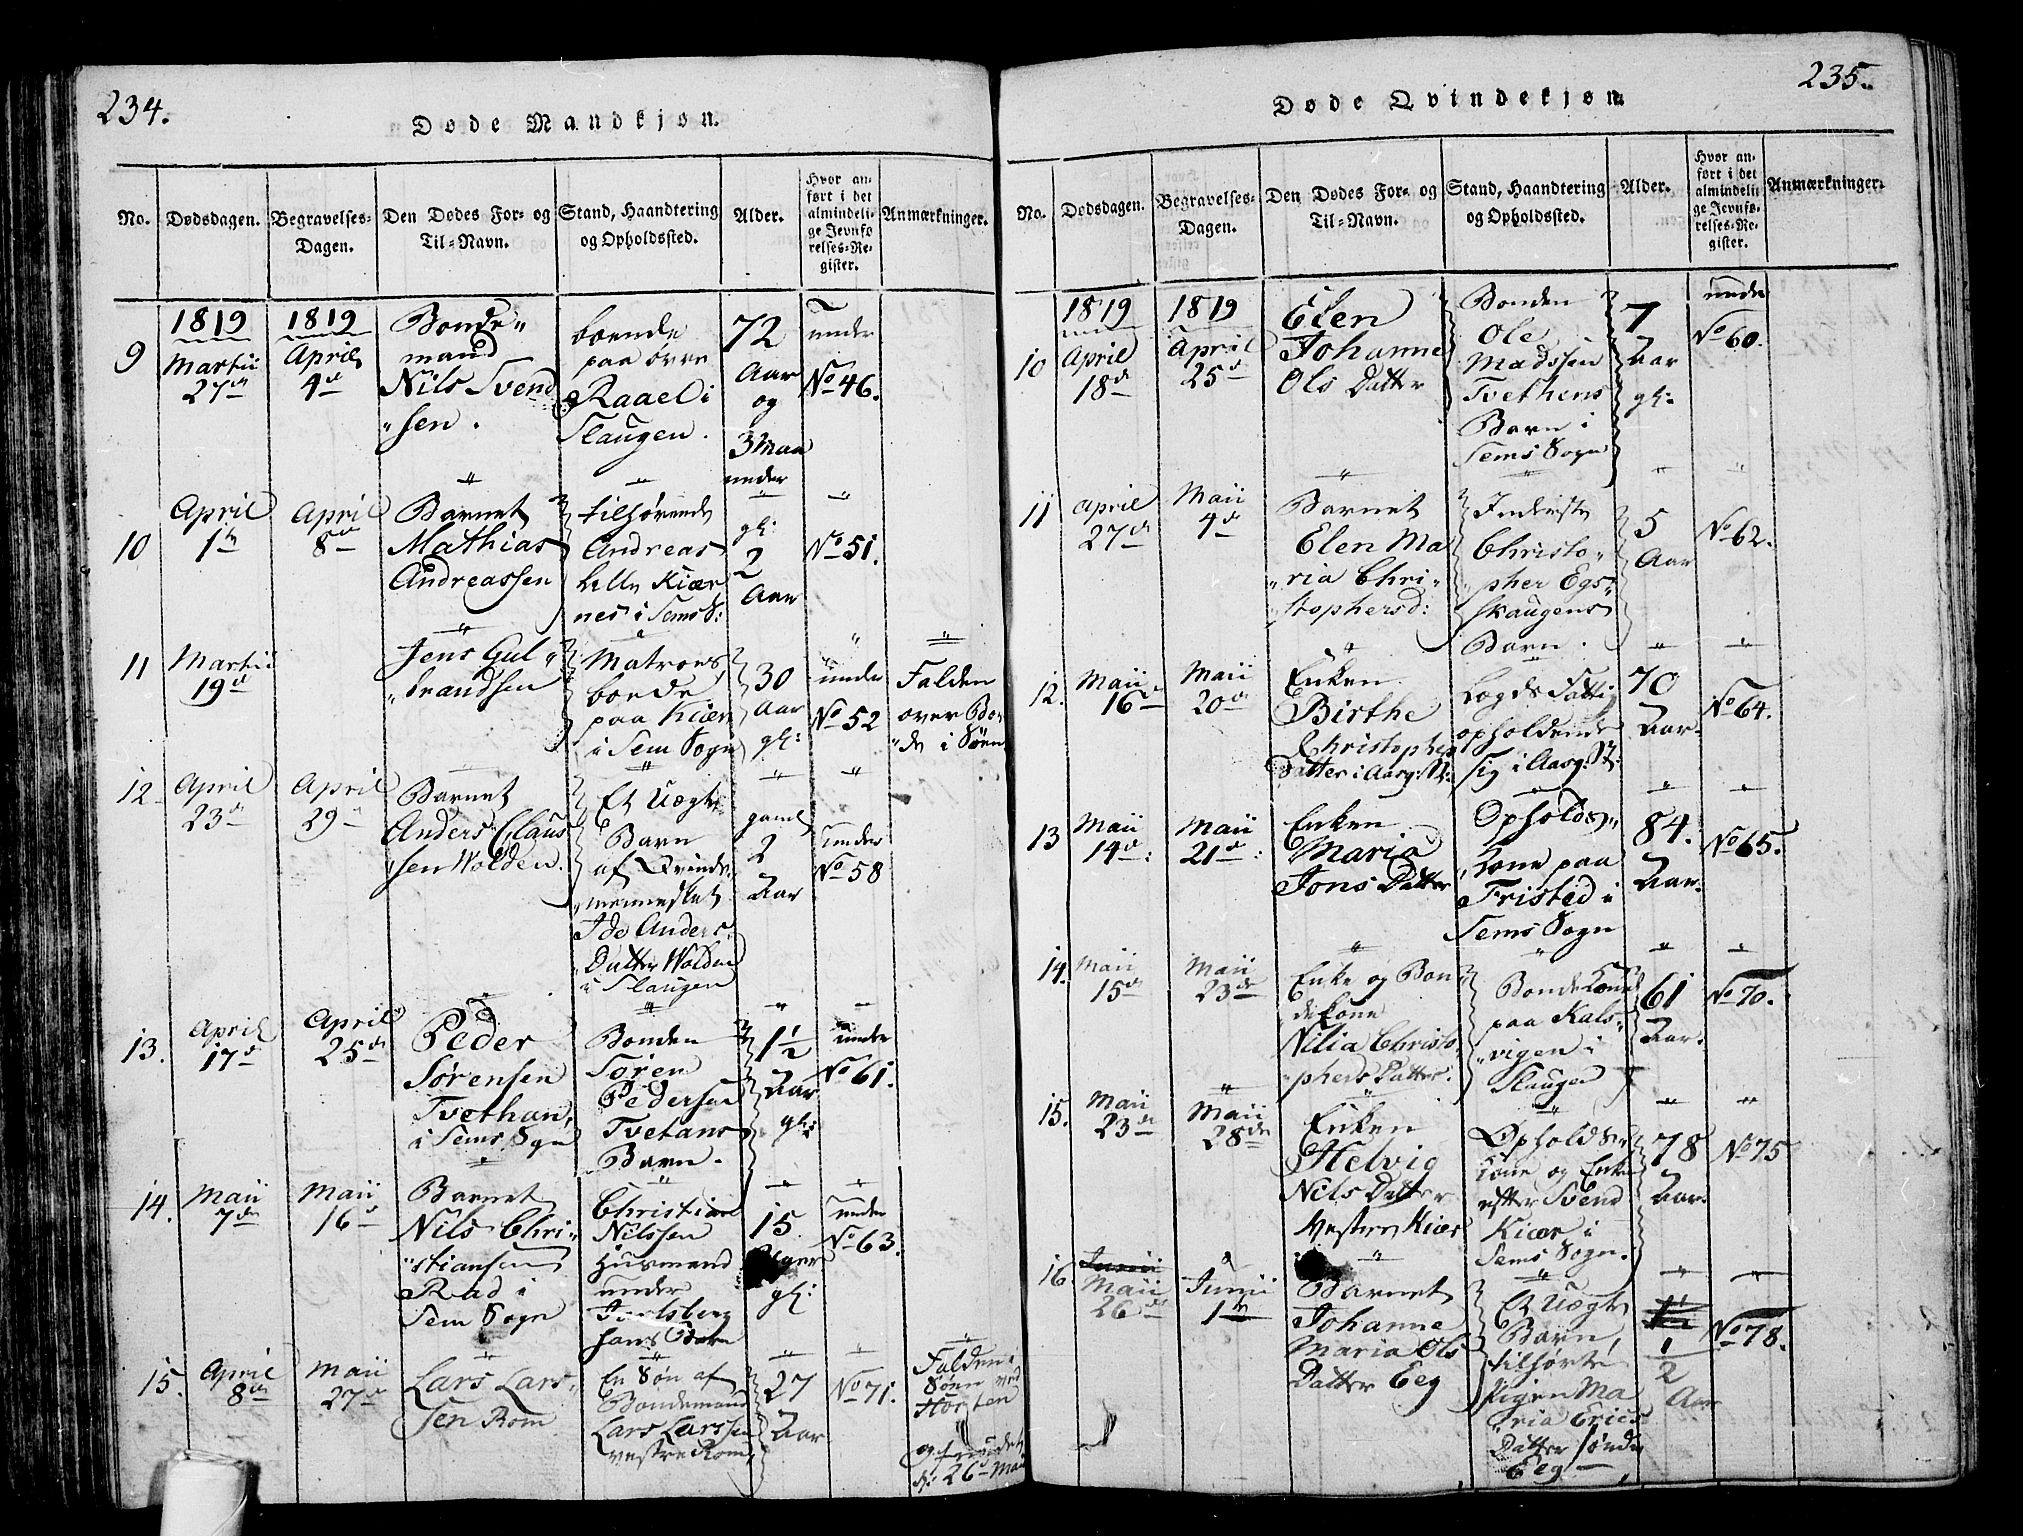 234.
Døde Mandkjøn.
No.
Dødsdagen.
Begravelses-
Dagen.
Den Dødes For- og
Til-Navn.
Stand, Haandtering
og Opholdssted.
Alder.
Hvor an-
ført i det
almindeli-
ge Jevnfø-
relses-Re-
gister.
Anmærkninger.
9
1819
Martii
27de
1819
April
4de
Bonde-
mand
Nils Svend
sen.
boende
paa øvre
Raael i
Slaugen.
72
Aar
og
3 Maa
under
No 46.
10
April
1te
April
8de
Barnet
Mathias
Andreassen
tilhørende
Andreas
lille Kiær
nes i Sems S:
under
gl:
2
Aar
No 51.
11
Martii
19de
Jens Gul
brandsen
Matros,
boende
paa Kiær
i Sem Sogn
30
Aar
gl:
under
No 52
Falden
over Bor
de i Søen
12
April
23de
April
29de
Barnet
Anders Claus
sen Wolden.
Et Uægte
Barn
af Qvinde-
mennesket
Ide Anders
Datter Wolden
i Slaugen
gaml
2
Aar
under
No 58
13.
April
17de
April
25de
Peder
Sørensen
Tvethan,
i Sems Sogn
Bonden
Søren
Pedersen
Tvetans
Barn.
1 1/2
Aar
gl:
under
No 61.
14.
Maii
7de
Maii
16de
Barnet
Nils Chri-
stiansen
Rad i
Sem Sogn
Christian
Nilssen
Huusmand
under
Jarlsberg
hans Barn
15
Uger
gl:
under
No 63.
15.
April
8de
Maii
27de
Lars Lars-
sen Rom
En Søn af
Bondemand
Lars Larssen
vestre Rom,
27
Aar
No 71.
Falden i
Søen ved
Horsten
og fundet
d: 26de Maii
235.
Døde Qvindekjøn.
No.
Dødsdagen.
Begravelses-
Dagen.
Den Dødes For- og
Til-Navn.
Stand, Haandtering
og Opholdssted.
Alder.
Hvor an-
ført i det
almindeli-
ge Jevnfø-
relses-Re-
gister.
Anmærkninger.
10
1819
April
18de
1819
April
25de
Elen
Johanne
Ols Datter
Bonden
Ole
Madssen
Tvethens
Barn i
Sems Sogn
7
Aar
gl:
under
No 60.
11
April
27de
Maii
4de
Barnet
Elen Ma
ria Chri-
stophersd:
Inderste
Christo-
pher Egs-
skaugens
Barn.
5
Aar
No 62.
12.
Maii
16de
Maii
20de
Enken
Birthe
Christophers
Datter i Aasg: St:
Logds Fattig
opholdende
sig i Aasg: St:
70
Aar.
No 64.
13
Maii
14de:
Maii
21de:
Enken
Maria
Jons Datter
Opholds-
Kone paa
Fristed i
Sems Sogn
84.
Aar.
No 65.
14.
Maii
15de
Maii
23de
Enke og Bon
dekone
Nilia Christo-
phers Datter.
Bonde Kone
paa Kals-
vigen i
Slaugen
61
Aar.
No 70.
15.
Maii
23de
Maii
28de
Enken
Helvig
Nils Datter
Vestre Kiær
Opholds-
Kone og Enke
efter Svend
Kiær i
Sems Sogn.
78
Aar.
No 75
16.
Junii
Maii
26de
Junii
1te
Barnet
Johanne
Maria Ols
Datter Eeg
Et Uægte
Barn,
tilhørte
Pigen Ma
ria Erics
Datter søndre
Eeg
1/2
Aar
No 78.